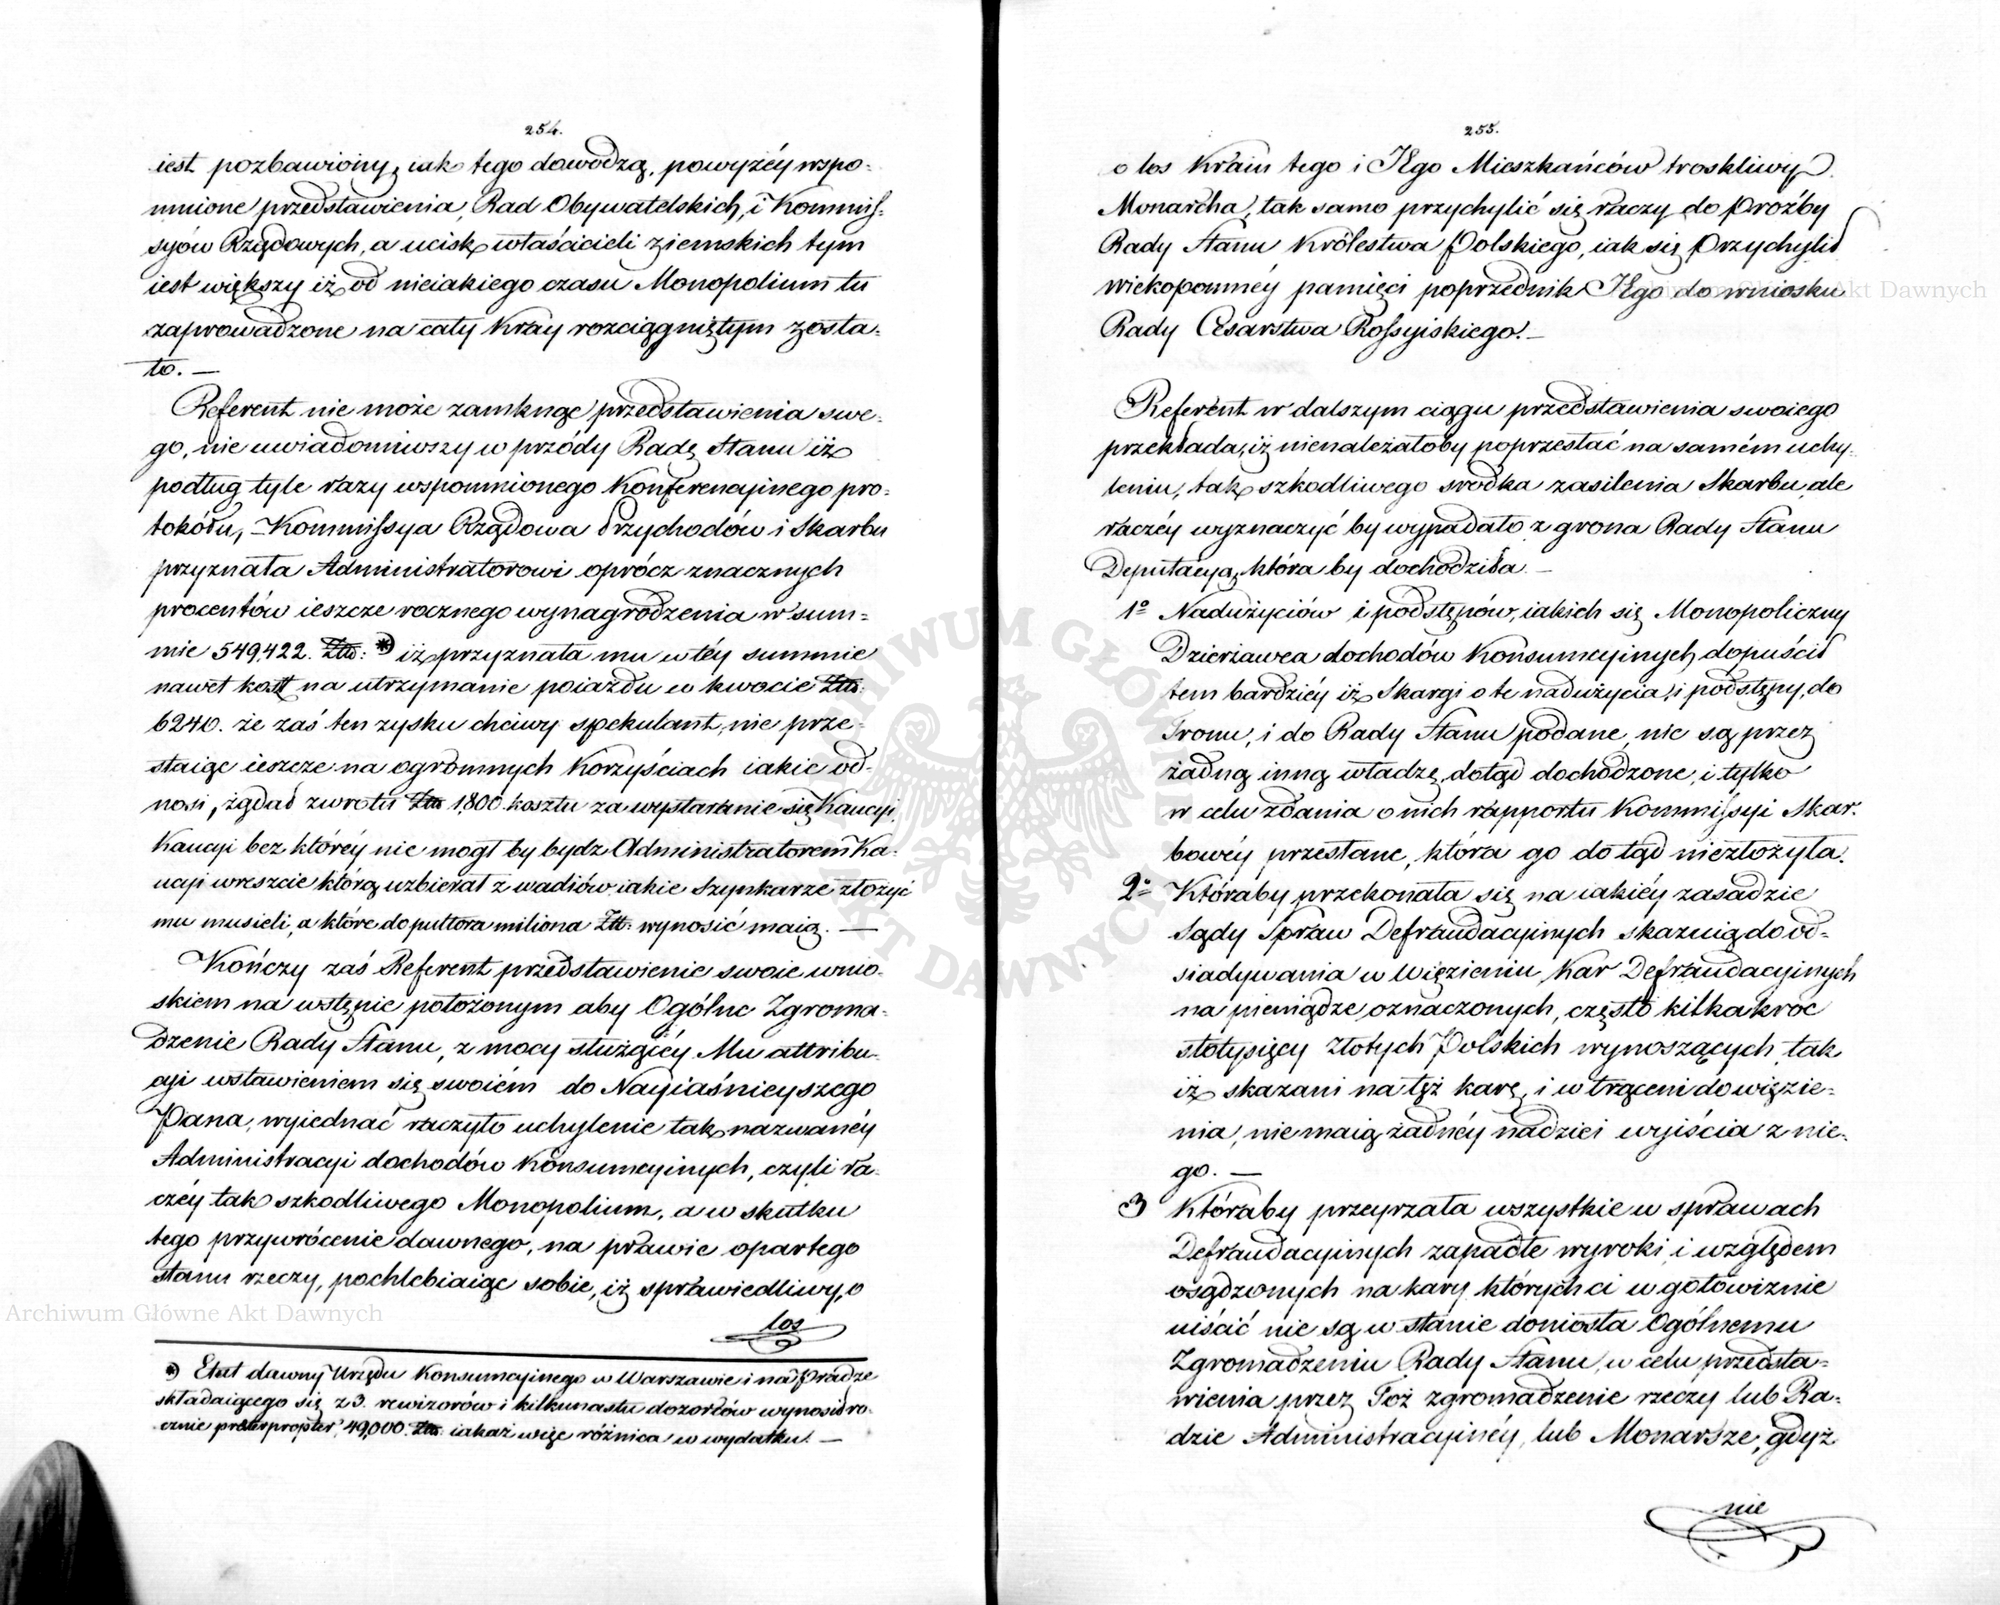 254.
iest pozbawiony, iak tego dowodzą, powyżéy wspo-
mnione przedstawienia, Rad Obywatelskich, i Kommis-
syów Rządowych, a ucisk właścicieli ziemskich tym
iest większy iż od nieiakiego czasu Monopolium tu
zaprowadzone na cały Kray rozciągniętym zosta-
ło. —
Referent nie może zamknąc przedstawienia swe-
go, nie uwiadomiwszy w przódy Radę Stanu iż
podług tyle razy wspomnionego Konferencyinego pro-
tokółu, – Kommissya Rządowa Przychodów i Skarbu
przyznała Administratorowi oprócz znacznych
procentów ieszcze rocznego wynagrodzenia w sum-
mie 549,422. Złt: *) iż przyznała mu w téy summie
nawet koszt na utrzymanie poiazdu w kwocie Złt:
6240. że zaś ten zysku chciwy spekulant, nie prze-
staiąc ieszcze na ogromnych Korzyściach iakie od-
nosi, żądał zwrotu Złt: 1,800 kosztu za wystaranie się Kaucyi,
Kaucyi bez któréy nie mogł by bydz Administratorem Ka-
ucyi wreszcie którą uzbierał z wadiów iakie Szynkarze złożyć
mu musieli, a które do puttora miliona Złt: wynosić maią. —
Kończy zaś Referent przedstawienie swoie wnio-
skiem na wstępie położonym aby Ogólne Zgroma-
dzenie Rady Stanu, z mocy służącéy Mu attribu-
cyi wstawieniem się swoiém do Nayiaśnieyszego
Pana, wyiednać raczyło uchylenie tak nazwanéy
Administracyi dochodów Konsumcyinych, czyli ra-
czéy tak szkodliwego Monopolium, a w skutku
tego przywrócenie dawnego, na prawie opartego
stanu rzeczy, pochlebiaiąc sobie, iż sprawiedliwy, o
los
*) Etat dawny Urzędu Konsumcyinego w Warszawie i na Pradze
składaiącego się z 3. rewizorów i kilkunastu dozorców wynosił ro-
cznie praeterpropter 49,000. Złt: iakaż więc różnica w wydatku! —
255.
o los Kraiu tego i JEgo Mieszkańców troskliwy
Monarcha, tak samo przychylić się raczy do Proźby
Rady Stanu Królestwa Polskiego, iak się Przychylił
wiekopomnéy pamięci poprzednik JEgo do wniosku
Rady Cesarstwa Rossyiskiego. —
Referent w dalszym ciągu przedstawienia swoiego
przekłada, iż nienależałoby poprzestać na samém uchy-
leniu, tak szkodliwego srodka zasilenia Skarbu, ale
raczéy wyznaczyć by wypadało z grona Rady Stanu
Deputacyą, która by dochodziła —
1º Nadużyciów i podstępów, iakich się Monopoliczny
Dzierżawca dochodów Konsumcyinych dopuścił
tem bardziéy iż Skargi o te nadużycia, i podstępy, do
Tronu, i do Rady Stanu podane, nie są przez
żadną inną władzę dotąd dochodzone, i tylko
w celu zdania o nich rapportu Kommissyi Skar-
bowéy przesłane, która go do tąd niezłożyła.
2º Któraby przekonała się na iakiéy zasadzie
Sądy Spraw Defraudacyinych skazuią do od-
siadywania w Więzieniu, Kar Defraudacyinych
na pieniądze oznaczonych, często kilkakroc
stotysięcy Złotych Polskich wynoszących, tak
iż skazani na téż karę, i wtrąceni do więzie-
nia, nie maią żadnéy nadziei wyiścia z nie-
go. —
3 Któraby przeyrzała wszystkie w sprawach
Defraudacyinych zapadłe wyroki, i względem
osądzonych na kary, których ci w gotowiznie
uiścić nie są w stanie doniosła Ogólnemu
Zgromadzeniu Rady Stanu, w celu przedsta-
wienia przez Toż zgromadzenie rzeczy lub Ra-
dzie Administracyinéy, lub Monarsze, gdyż
nie
Archiwum Główne Akt Dawnych
Archiwum Główne Akt Dawnych
ARCHIWUM GŁÓWNE AKT DAWNYCH